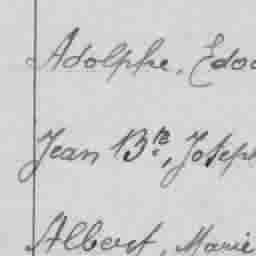 Adolphe, Edou
Jean Bte, Joseph
Albert, Marie